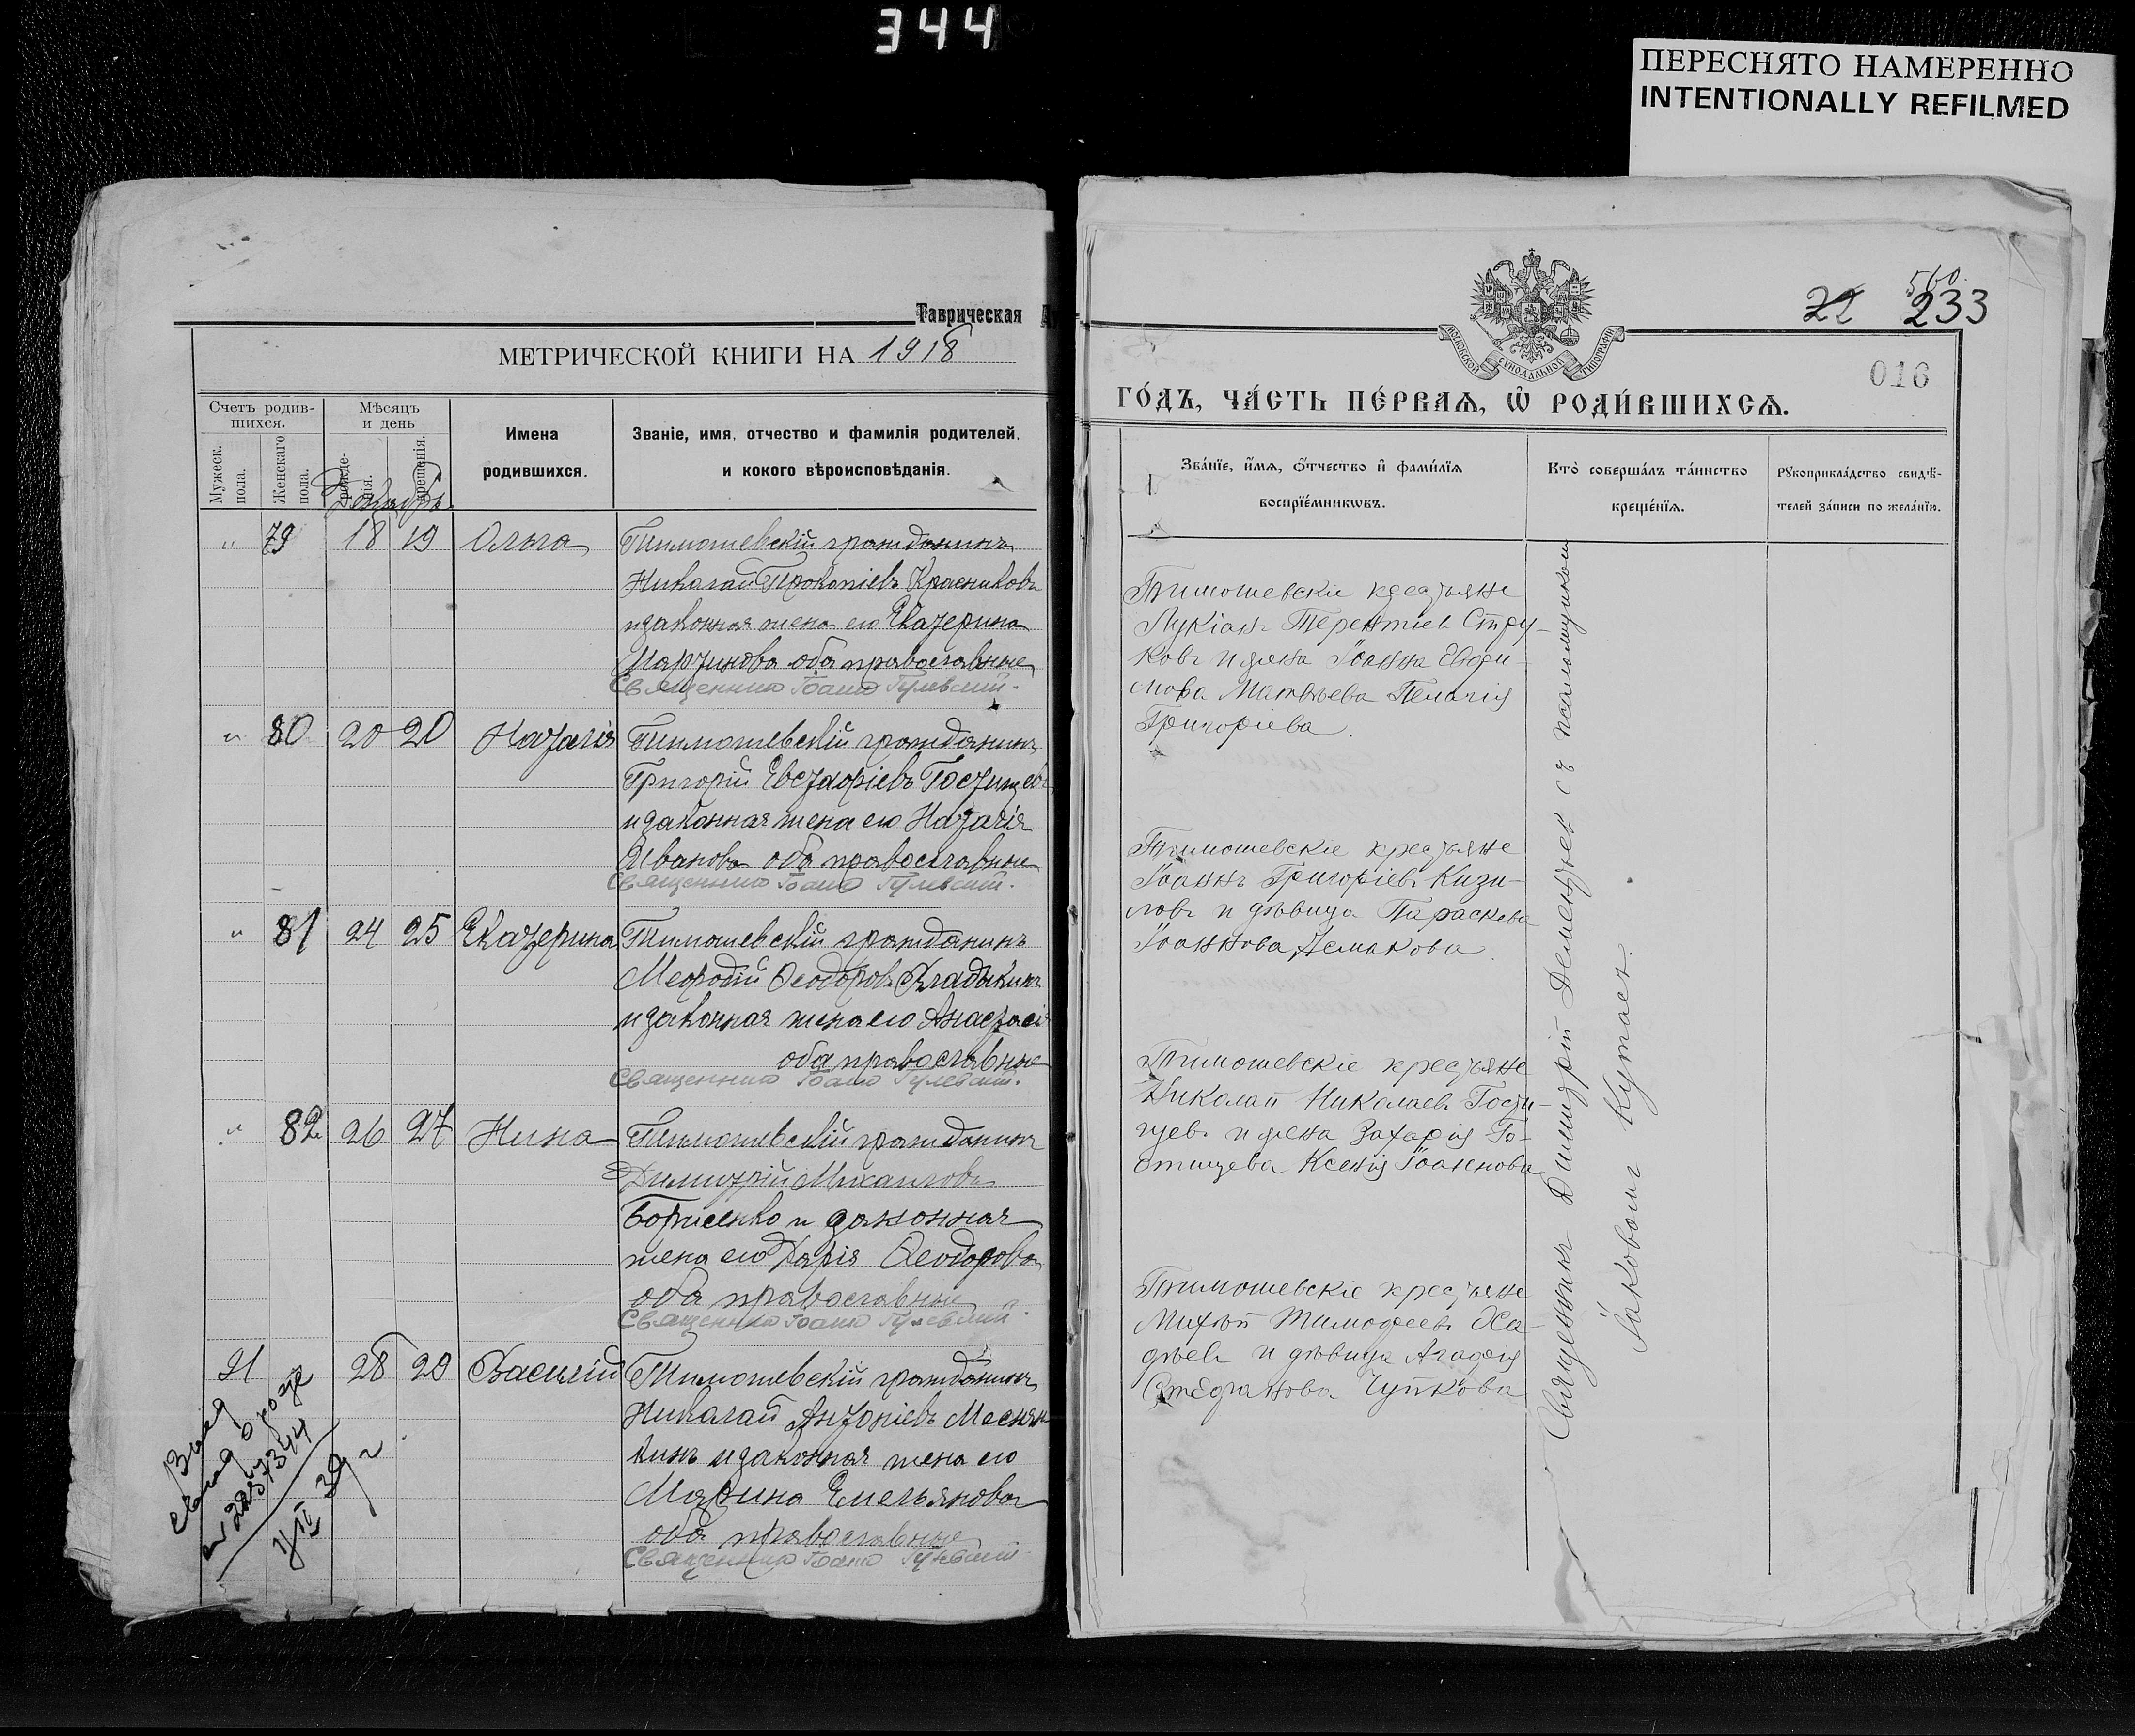 344
ПЕРЕСНЯТО НАМЕРЕННО
INTENTIONALLY REFILMED
Таврическая
МЕТРИЧЕСКОЙ КНИГИ НА 1918
Счетъ родив-
шихся.
Мужеск.
пола.
Женскаго
пола.
Мѣсяцъ
и день
рожде-
нія.
крещенія.
Имена
родившихся.
Званіе, имя, отчество и фамилія родителей,
и кокого вѣроисповѣданія.
Декабрь
" 79 18 19 Ольга Тимошевскій гражданинъ
Николай Прокопіевъ Красниковъ
и законная жена его Екатерина
Мартинова оба православные
Священникъ Іоаннъ Гулевский.
" 80 20 20 Наталія Тимошевскій гражданинъ
Григорій Евстафіевъ Гостищевъ
и законная жена его Наталія
Иванова оба православные
Священникъ Іоаннъ Гулевский.
" 81 24 25 Екатерина Тимошевскій гражданинъ
Мефодій Феодоровъ Владыкинъ
и законная жена его Анастасія
оба православные
Священникъ Іоаннъ Гулевский.
" 82 26 27 Нина Тимошевскій гражданинъ
Димитрій Михаиловъ
Борисенко и законная
жена его Дарія Феодорова
оба православные
Священникъ Іоаннъ Гулевский.
91 28 29 Василій Тимошевскій гражданинъ
Николай Антоніевъ
и законная жена его
Марина Емельянова
оба православные
Священникъ Іоаннъ Гулевский
22 560
233
016
МОСКОВСКОЙ СѴНОДАЛЬНОЙ ТИПОГРАФІИ
ГО́ДЪ, ЧА́СТЬ ПЕ́РВАѦ, Ѡ҆ РОДИ́ВШИХСѦ.
Зва́нїе, и҆́мѧ, ѻ҆́тчество и҆ фами́лїѧ
воспрїе́мникѡвъ.
Кто̀ соверша́лъ та́инство
креще́нїѧ.
Рꙋкоприкла́дство свидѣ́-
телей за́писи по жела́нїю.
Тимошевскіе крестьяне
Лукіанъ Терентіев Стру-
ковъ и жена Іоанна Евфи-
мова Матвѣева Пелагія
Григоріева.
Тимошевскіе крестьяне
Іоаннъ Григоріевъ Кизи-
ловъ и дѣвица Параскева
Іоаннова
Тимошевскіе крестьяне
Николай Николаевъ Гости-
щевъ и жена Захарія Го-
стищева Ксенія Іоаннова
Тимошевскіе крестьяне
Тимофеевъ Ха-
дѣевъ и дѣвица Агафія
Стефанова Чуйкова
Священникъ Димитрій Дементьев съ псаломщикомъ
Іаковомъ Кутаевъ.